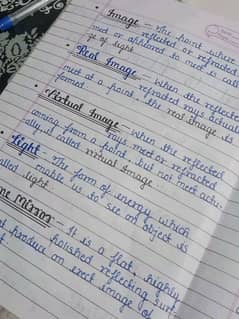 Image – The point where
reflected or refracted
met or appeared to met is called
ge of light
Real Image – When the reflected
or refracted rays actual
met at a point, the real image is
formed.
Virtual Image – When the reflected
or refracted
coming from a rays meet
point, but not meet actu-
ally, it called virtual Image
Light – The form of energy which
enable us to see an object is
called light.
ne Mirror – It is a flat, highly
polished reflecting surf
d produce an erect image of